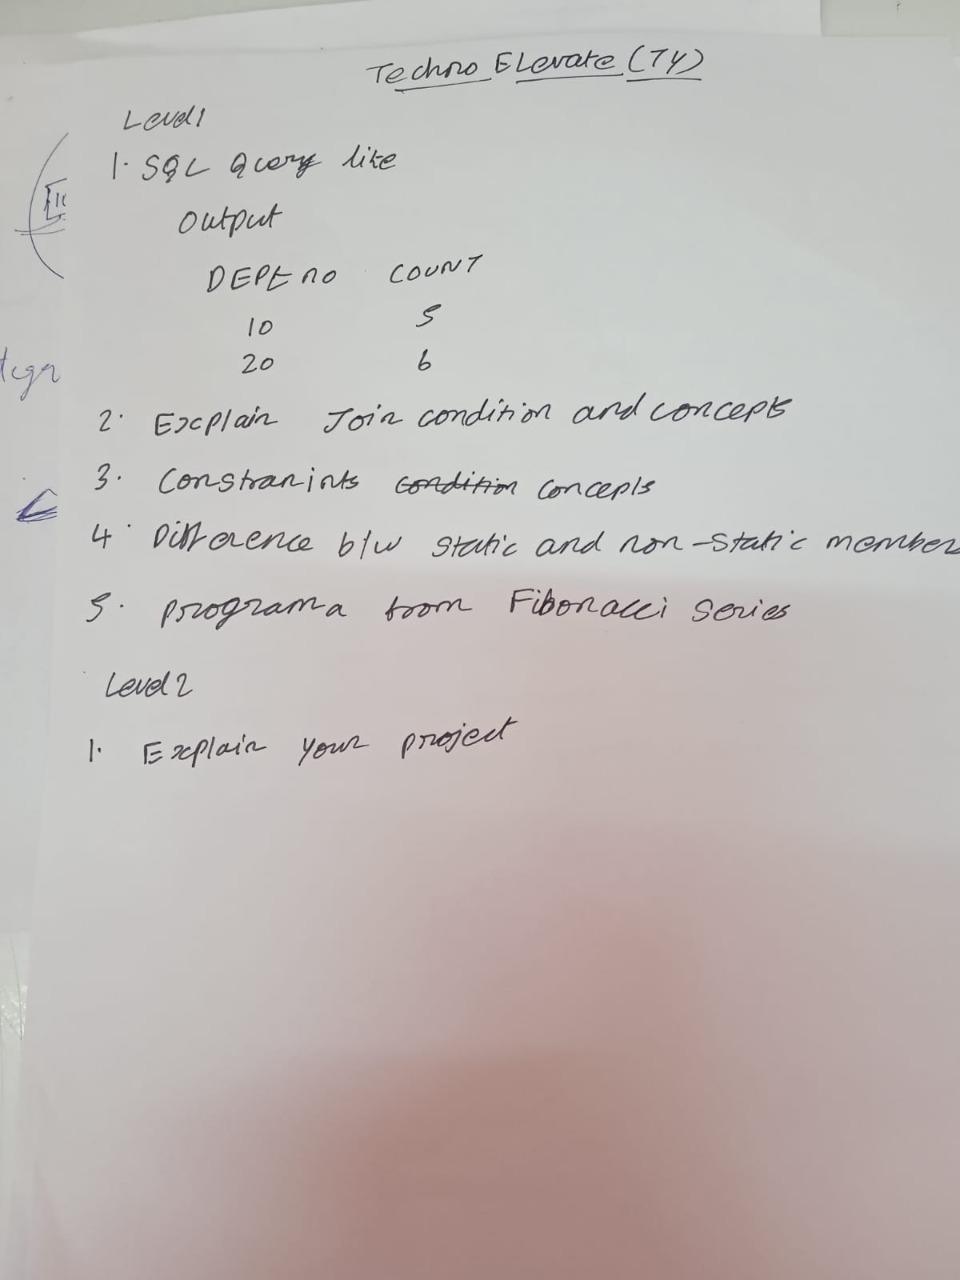 Techno Elevate (TY)
Level1
1. SQL Query like
Output
DEPt no COUNT
10 5
20 6
2. Explain Join condition and concepts
3. Constranints condition concepts
4. Difference b/w static and non-static member
5. programa from Fibonacci Series
Level 2
1. Explain your project